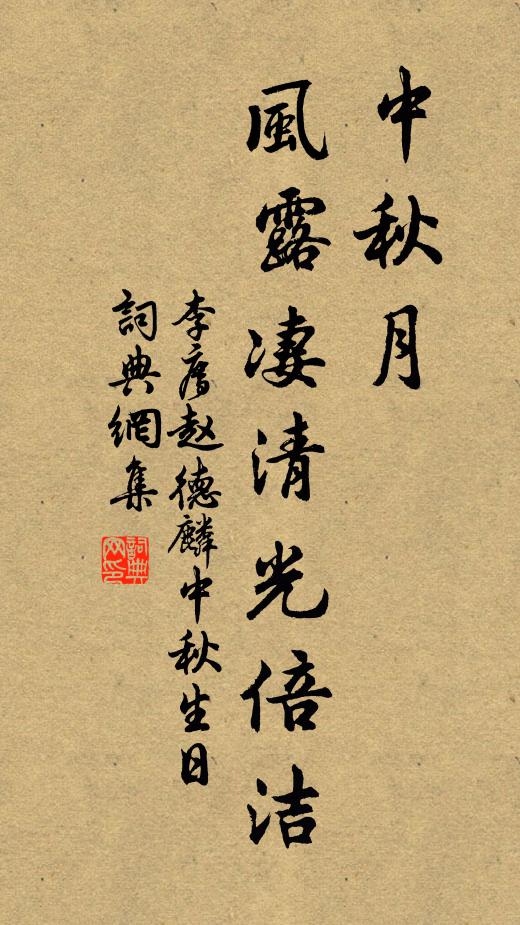 中秋月
風露凄清光倍洁
李廌赵德麟中秋生日
詞典網集
詞典网印